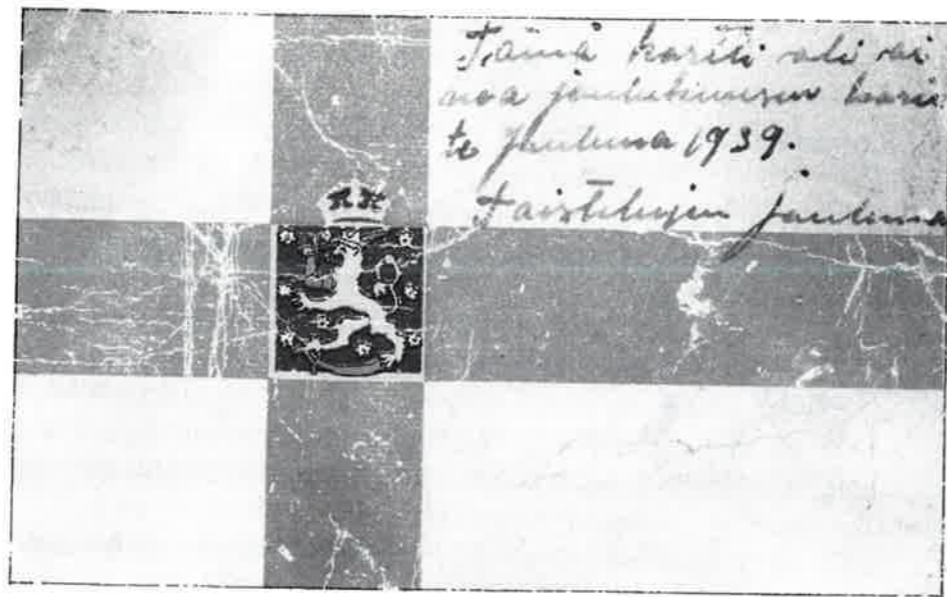 Tämä kortti oli ai
noa joulukuusen koris
te Jouluna 1939.
Taistelujen Jouluna